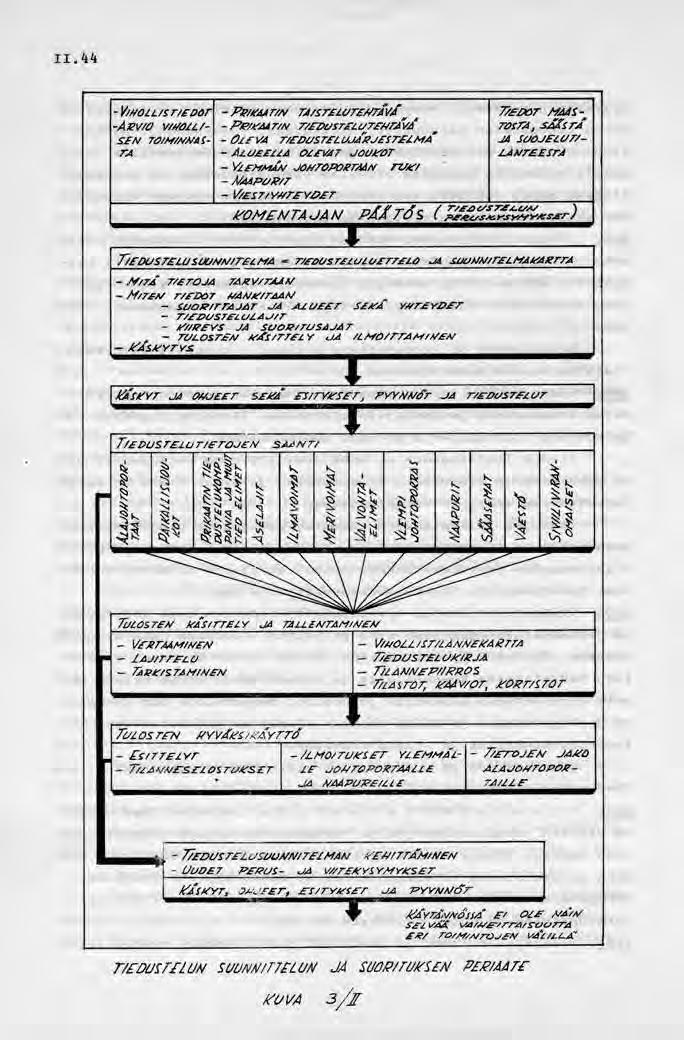 II.44
-VIHOLLISTIEDOT
-ARVIO VIHOLLI-
SEN TOIMINNAS-
TA
- PRIKAATIN TAISTELUTEHTÄVÄ
- PRIKAATIN TIEDUSTELUTEHTÄVÄ
- OLEVA TIEDUSTELUJÄRJESTELMÄ
- ALUEELLA OLEVAT JOUKOT
- YLEMMÄN JOHTOPORTAAN TUKI
- NAAPURIT
- VIESTIYHTEYDET
TIEDOT MAAS-
TOSTA, SÄÄSTÄ
JA SUOJELUTI-
LANTEESTA
KOMENTAJAN PÄÄTÖS ( TIEDUSTELUN
PERUSKYSYMYKSET )
TIEDUSTELUSUUNNITELMA = TIEDUSTELULUETTELO JA SUUNNITELMAKARTTA
- MITÄ TIETOJA TARVITAAN
- MITEN TIEDOT HANKITAAN
- SUORITTAJAT JA ALUEET SEKÄ YHTEYDET
- TIEDUSTELULAJIT
- KIIREYS JA SUORITUSAJAT
- TULOSTEN KÄSITTELY JA ILMOITTAMINEN
- KÄSKYTYS
KÄSKYT JA OHJEET SEKÄ ESITYKSET, PYYNNÖT JA TIEDUSTELUT
TIEDUSTELUTIETOJEN SAANTI
ALAJOHTOPOR-
TAAT
PAIKALLISJOU-
KOT
PRIKAATIN TIE-
DUSTELUKOMP-
PANIA JA MUUT
TIED ELIMET
ASELAJIT
ILMAVOIMAT
MERIVOIMAT
VALVONTA-
ELIMET
YLEMPI
JOHTOPORRAS
NAAPURIT
SÄÄASEMAT
VÄESTÖ
SIVIILIVIRAN-
OMAISET
TULOSTEN KÄSITTELY JA TALLENTAMINEN
- VERTAAMINEN
- LAJITTELU
- TARKISTAMINEN
- VIHOLLISTILANNEKARTTA
- TIEDUSTELUKIRJA
- TILANNEPIIRROS
- TILASTOT, KAAVIOT, KORTISTOT
TULOSTEN HYVÄKSIKÄYTTÖ
- ESITTELYT
- TILANNESELOSTUKSET
- ILMOITUKSET YLEMMÄL-
LE JOHTOPORTAALLE
JA NAAPUREILLE
- TIETOJEN JAKO
ALAJOHTOPOR-
TAILLE
- TIEDUSTELUSUUNNITELMAN KEHITTÄMINEN
- UUDET PERUS- JA VIITEKYSYMYKSET
KÄSKYT, OHJEET, ESITYKSET JA PYYNNÖT
KÄYTÄNNÖSSÄ EI OLE NÄIN
SELVÄÄ VAIHEITTAISUUTTA
ERI TOIMINTOJEN VÄLILLÄ
TIEDUSTELUN SUUNNITTELUN JA SUORITUKSEN PERIAATE
KUVA 3/II